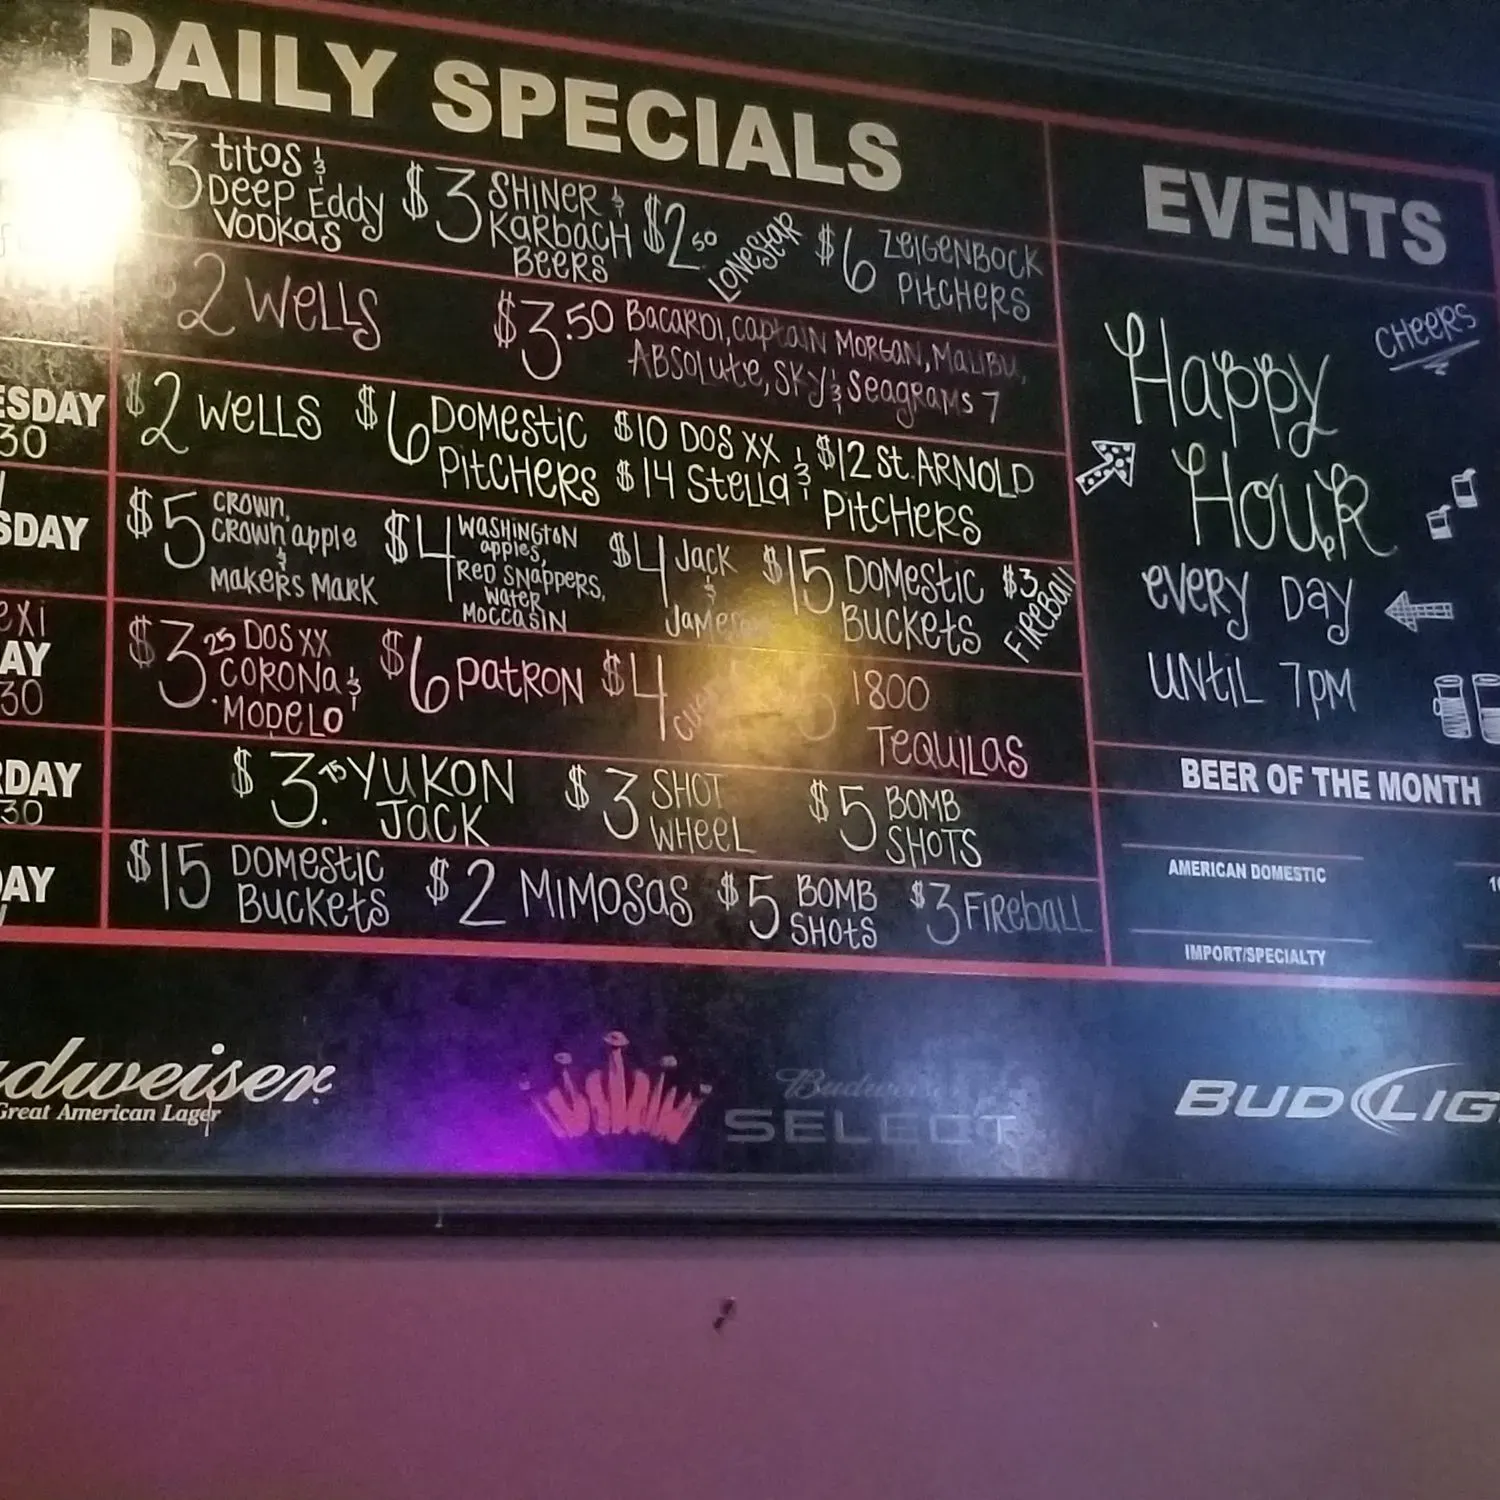 DAILY SPECIALS
3 titos &
DEEP Eddy
VODKAS
$3 SHINER &
KARBACH
BEERS
$2.50 LONESTAR
$6 ZEIGENBOCK
PITCHERS
2 WELLS
$3.50 BACARDI, CAPTAIN MORGAN, MALIBU,
ABSOLUTE, SKY & SEAGRAMS 7
ESDAY
30
$2 WELLS
$6 DOMESTIC
PITCHERS
$10 DOS XX
$14 Stella &
$12 St. ARNOLD
PITCHERS
SDAY
$5 CROWN,
CROWN apple
&
MAKERS MARK
$4 WASHINGTON
apples,
RED SNAPPERS,
WATER
MOCCASIN
$4 JACK
&
$15 DOMESTIC
BUCKETS
$3 FIREBALL
exi
AY
30
$3.25 DOS XX
CORONA &
MODELO
$6 PATRON
$4
1800
TEQUILAS
RDAY
30
$3.75 YUKON
JACK
$3 SHOT
WHEEL
$5 BOMB
SHOTS
AY
$15 DOMESTIC
BUCKETS
$2 MIMOSAS
$5 BOMB
SHOTS
$3 FIREBALL
EVENTS
CHEERS
Happy
HOUR
EVERY DAY
UNTIL 7PM
BEER OF THE MONTH
AMERICAN DOMESTIC
IMPORT/SPECIALTY
udweiser
Great American Lager
Budweiser
SELECT
BUD LIG